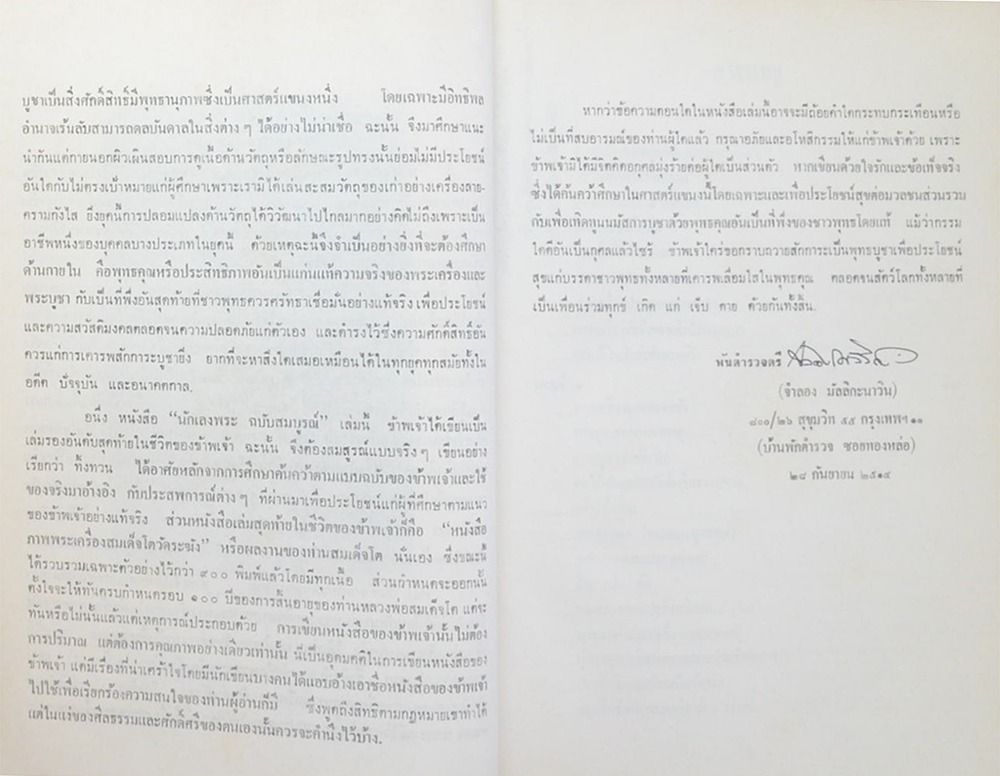 บูชาเป็นสิ่งศักดิ์สิทธิ์มีพุทธานุภาพซึ่งเป็นศาสตร์แขนงหนึ่ง โดยเฉพาะมีอิทธิพล
อำนาจเร้นลับสามารถดลบันดาลในสิ่งต่าง ๆ ได้อย่างไม่น่าเชื่อ ฉะนั้น จึงมาศึกษาแนะ
นำกันแต่ภายนอกผิวเผินสอบการดูเนื้อด้านวัตถุหรือลักษณะรูปทรงนั้นย่อมไม่มีประโยชน์
อันใดกับไม่ตรงเป้าหมายแก่ผู้ศึกษาเพราะเรามิได้เล่นสะสมวัตถุของเก่าอย่างเครื่องลาย-
ครามกังไส ยิ่งยุคนี้การปลอมแปลงด้านวัตถุได้วิวัฒนาไปไกลมากอย่างคิดไม่ถึงเพราะเป็น
อาชีพหนึ่งของบุคคลบางประเภทในยุคนี้ ด้วยเหตุฉะนี้จึงจำเป็นอย่างยิ่งที่จะต้องศึกษา
ด้านภายใน คือพุทธคุณหรือประสิทธิภาพอันเป็นแก่นแท้ความจริงของพระเครื่องและ
พระบูชา กับเป็นที่พึ่งอันสุดท้ายที่ชาวพุทธควรศรัทธาเชื่อมั่นอย่างแท้จริง เพื่อประโยชน์
และความสวัสดิมงคลตลอดจนความปลอดภัยแก่ตัวเอง และดำรงไว้ซึ่งความศักดิ์สิทธิ์อัน
ควรแก่การเคารพสักการะบูชายิ่ง ยากที่จะหาสิ่งใดเสมอเหมือนได้ในทุกยุคทุกสมัยทั้งใน
อดีต ปัจจุบัน และอนาคตกาล.
อนึ่ง หนังสือ “นักเลงพระ ฉบับสมบูรณ์” เล่มนี้ ข้าพเจ้าได้เขียนเป็น
เล่มรองอันดับสุดท้ายในชีวิตของข้าพเจ้า ฉะนั้น จึงต้องสมสูรณ์แบบจริง ๆ เขียนอย่าง
เรียกว่า ทิ้งทวน ได้อาศัยหลักจากการศึกษาค้นคว้าตามแบบฉบับของข้าพเจ้าและใช้
ของจริงมาอ้างอิง กับประสพการณ์ต่าง ๆ ที่ผ่านมาเพื่อประโยชน์แก่ผู้ที่ศึกษาตามแนว
ของข้าพเจ้าอย่างแท้จริง ส่วนหนังสือเล่มสุดท้ายในชีวิตของข้าพเจ้าก็คือ “หนังสือ
ภาพพระเครื่องสมเด็จโตวัดระฆัง” หรือผลงานของท่านสมเด็จโต นั่นเอง ซึ่งขณะนี้
ได้รวบรวมเฉพาะตัวอย่างไว้กว่า ๙๐๐ พิมพ์แล้วโดยมีทุกเนื้อ ส่วนกำหนดจะออกนั้น
ตั้งใจจะให้ทันครบกำหนดรอบ ๑๐๐ ปีของการสิ้นอายุของท่านหลวงพ่อสมเด็จโต แต่จะ
ทันหรือไม่นั้นแล้วแต่เหตุการณ์ประกอบด้วย การเขียนหนังสือของข้าพเจ้านั้นไม่ต้อง
การปริมาณ แต่ต้องการคุณภาพอย่างเดียวเท่านั้น นี่เป็นอุดมคติในการเขียนหนังสือของ
ข้าพเจ้า แต่มีเรื่องที่น่าเศร้าใจโดยมีนักเขียนบางคนได้แอบอ้างเอาชื่อหนังสือของข้าพเจ้า
ไปใช้เพื่อเรียกร้องความสนใจของท่านผู้อ่านก็มี ซึ่งพูดถึงสิทธิตามกฎหมายเขาทำได้
แต่ในแง่ของศีลธรรมและศักดิ์ศรีของตนเองนั้นควรจะคำนึงไว้บ้าง.
หากว่าข้อความตอนใดในหนังสือเล่มนี้อาจจะมีถ้อยคำใดกระทบกระเทือนหรือ
ไม่เป็นที่สบอารมณ์ของท่านผู้ใดแล้ว กรุณาอภัยและอโหสิกรรมให้แก่ข้าพเจ้าด้วย เพราะ
ข้าพเจ้ามิได้มีจิตคิดอกุศลมุ่งร้ายต่อผู้ใดเป็นส่วนตัว หากเขียนด้วยใจรักและข้อเท็จจริง
ซึ่งได้ค้นคว้าศึกษาในศาสตร์แขนงนี้โดยเฉพาะและเพื่อประโยชน์สุขต่อมวลชนส่วนรวม
กับเพื่อเทิดทูนนมัสการบูชาด้วยพุทธคุณอันเป็นที่พึ่งของชาวพุทธโดยแท้ แม้ว่ากรรม
ใดคือันเป็นกุศลแล้วไซร้ ข้าพเจ้าใคร่ขอกราบถวายสักการะเป็นพุทธบูชาเพื่อประโยชน์
สุขแก่บรรดาชาวพุทธทั้งหลายที่เคารพเลื่อมใสในพุทธคุณ ตลอดจนสัตว์โลกทั้งหลายที่
เป็นเพื่อนร่วมทุกข์ เกิด แก่ เจ็บ ตาย ด้วยกันทั้งสิ้น.
พันตำรวจตรี
(จำลอง มัลลิกะนาวิน)
๘๐๐/๒๖ สุขุมวิท ๕๕ กรุงเทพฯ ๑๑
(บ้านพักตำรวจ ซอยทองหล่อ)
๒๘ กันยายน ๒๕๑๔